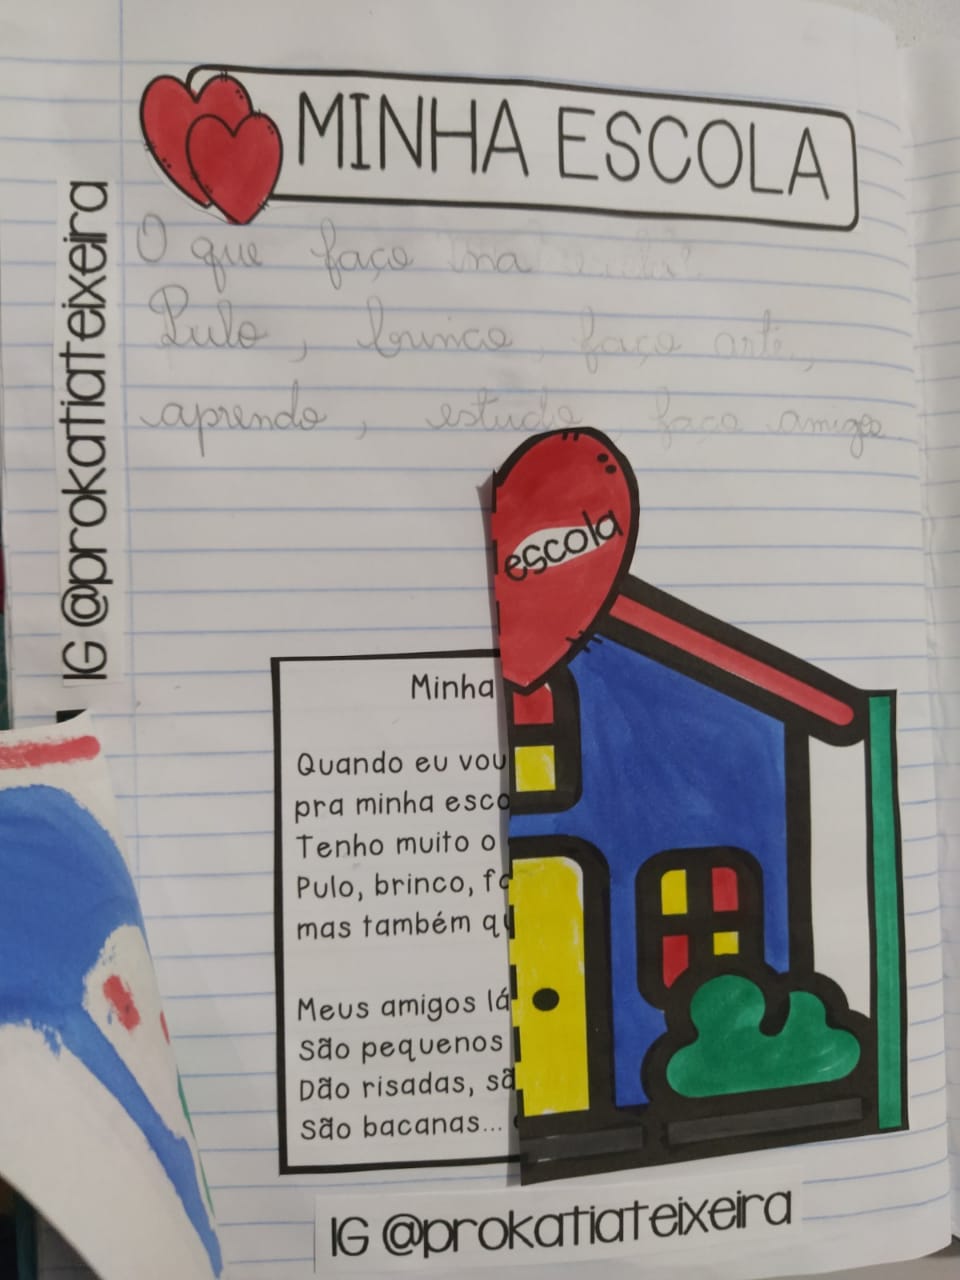 MINHA ESCOLA
O que faço na
Pulo, brinco, faço arte,
aprendo, estudo, faço amigos
IG @prokatiateixeira
escola
Minha
Quando eu vou
pra minha esco
Tenho muito o
Pulo, brinco, fa
mas também qu
Meus amigos lá
São pequenos
Dão risadas, sã
são bacanas...
IG @prokatiateixeira